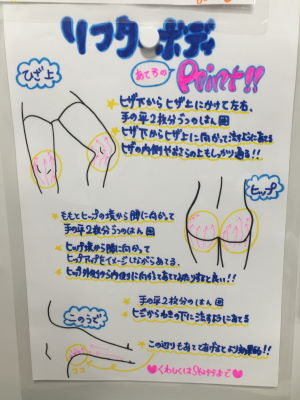 リフタ ボディ
ひざ上
あて方の Point!!
★ヒザ下からヒザ上にかけて左右、
手の平2枚分ずつのはん囲
★ヒザ下からヒザ上に向かって流すようにあてる
ヒザの内側や
上もしっかり通る!!
ヒップ
★ももとヒップの境から腰に向かって
手の平2枚分ずつのはん囲
★ヒップ境から腰に向かって
ヒップアップをイメージしながらあてる。
★ヒップ外側から内側に向かってあててみたりすると良い!!
このうで
★手の平2枚分のはん囲
★ヒジからわきの下に流すようにあてる
★この辺りもあててあげるとより効果的!!
ココ
♥くわしくはStaffまで♥